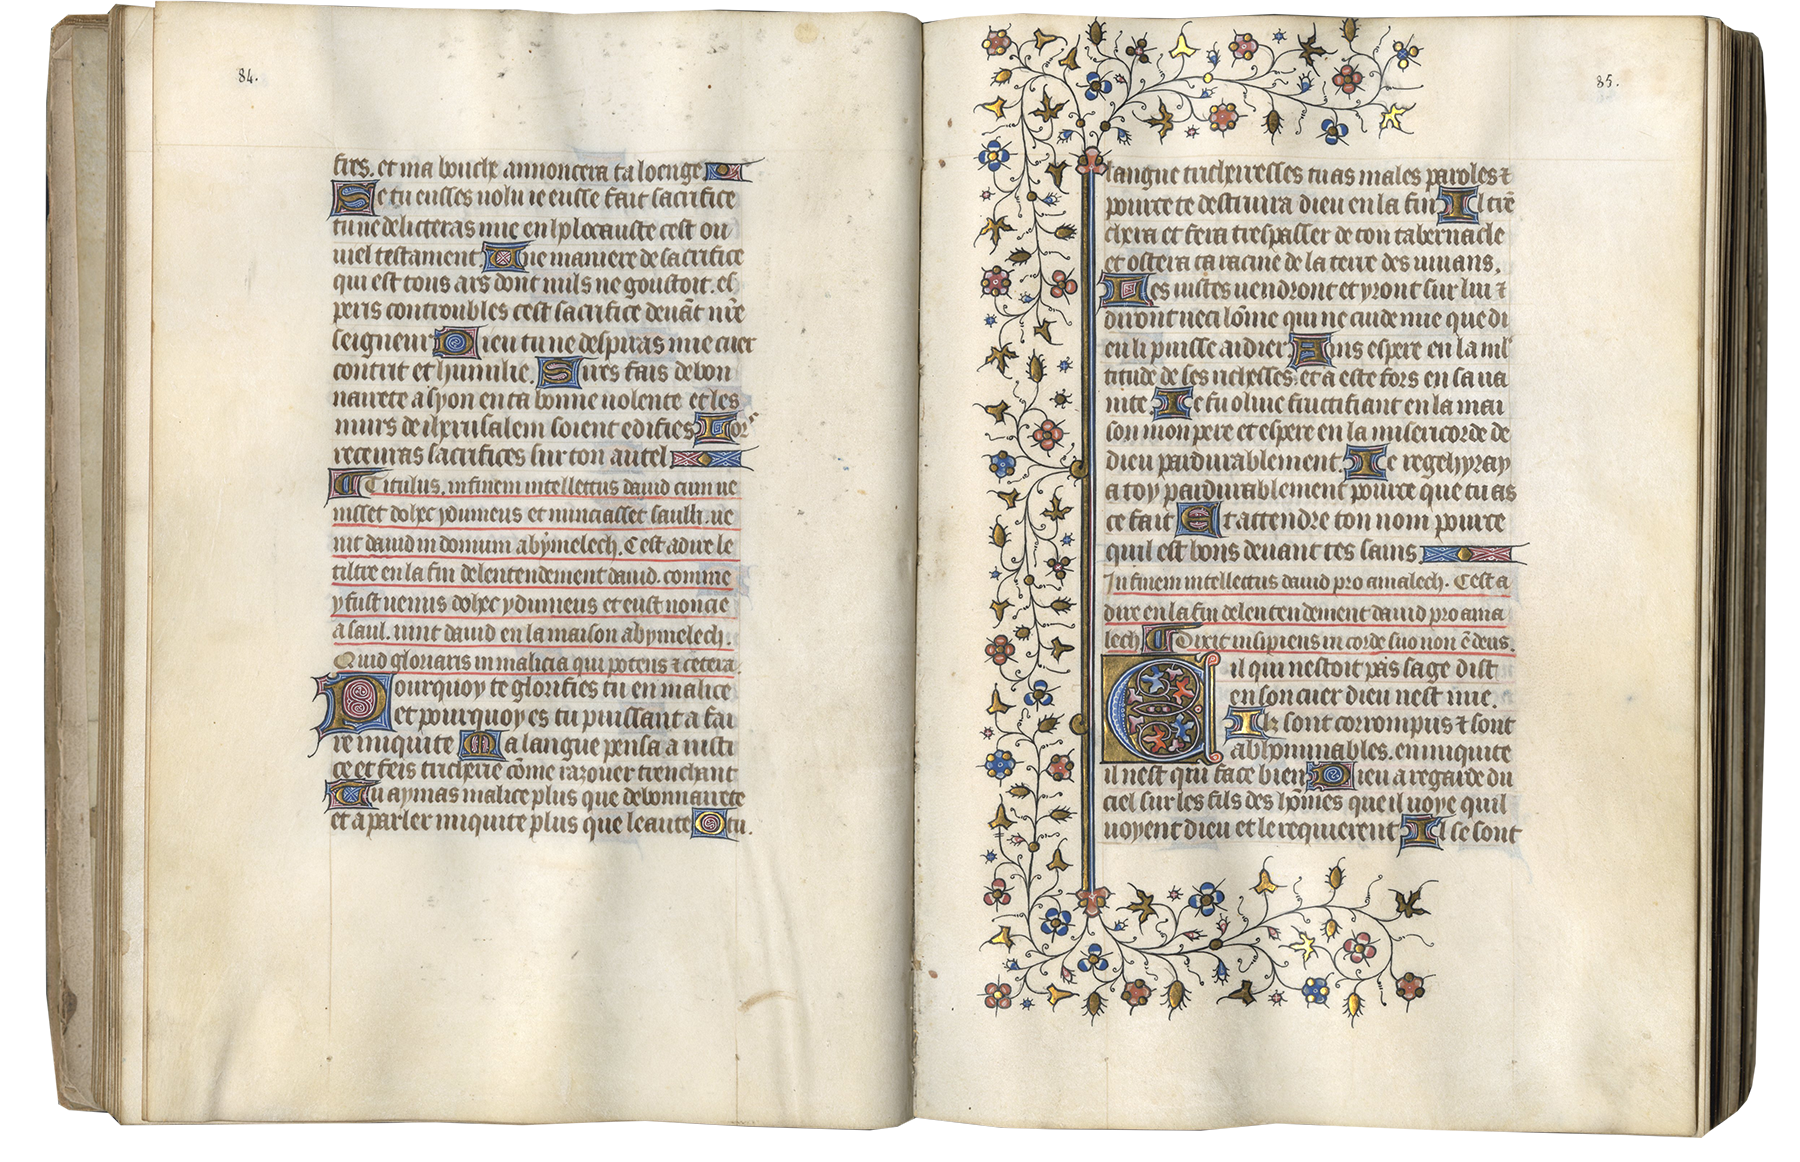 84.
fres. et ma bouche annoncera ta loenge
Se tu eusses uolu ie eusse fait sacrifice
tu ne deliteras mie en holocauste cest ou
uiel testament Une maniere de sacrifice
qui est tous ars dont nuls ne goustoit. es
peris controubles cest sacrifice deuãt nr̃e
seigneur Dieu tu ne despiras mie cuer
contrit et humilie. Sires fais debon
nairete a syon en ta bonne uolente et les
murs de iherusalem soient edifies Lors
receuras sacrifices sur ton autel
Titulus. in finem intellectus dauid cum ue
nisset dohec ydumeus et nunciasset sauli. ue
nit dauid in domum abymelech. C est adire le
tiltre en la fin delentendement dauid. comme
y fust uenus dohec ydumeus et eust noncie
a saul. uint dauid en la maison abymelech.
Quid gloriaris in malicia qui potens ⁊ cetera.
Pourquoy te glorifies tu en malice
et pourquoy es tu puissant a fai
re iniquite Ma langue pensa a iusti
ce et feis tricherie cõme razouer trenchant
Tu aymas malice plus que debonnairete
et a parler iniquite plus que leaute O tu.
85.
langue tricherresses tu as males paroles ⁊
pource te destruira dieu en la fin Il tre
chera et fera trespasser de ton tabernacle
et ostera ta racine de la terre des uiuans.
Les iustes uendront et yront sur lui ⁊
diront ueci lõme qui ne cuide mie que di
eu li puisse aidier Ains espere en la ml
titude de ses richesses. et a este fors en sa ua
nite Ie fu oliue fructifiant en la mai
son mon pere et espere en la misericorde de
dieu pardurablement. Ie regehyray
a toy pardurablement pource que tu as
ce fait Et attendre ton nom pource
quil est bons deuant tes sains
In finem intellectus dauid pro amalech. C est a
dire en la fin delentendement dauid pro ama
lech Dixit insipiens in corde suo non ẽ deus.
Cil qui nestoit pas sage dist
en son cuer dieu nest mie.
Ilz sont corrompus ⁊ sont
abhominables. en iniquite
il nest qui face bien Dieu a regarde du
ciel sur les fils des hõmes que il uoye quil
uoyent dieu et le requierent Il se sont